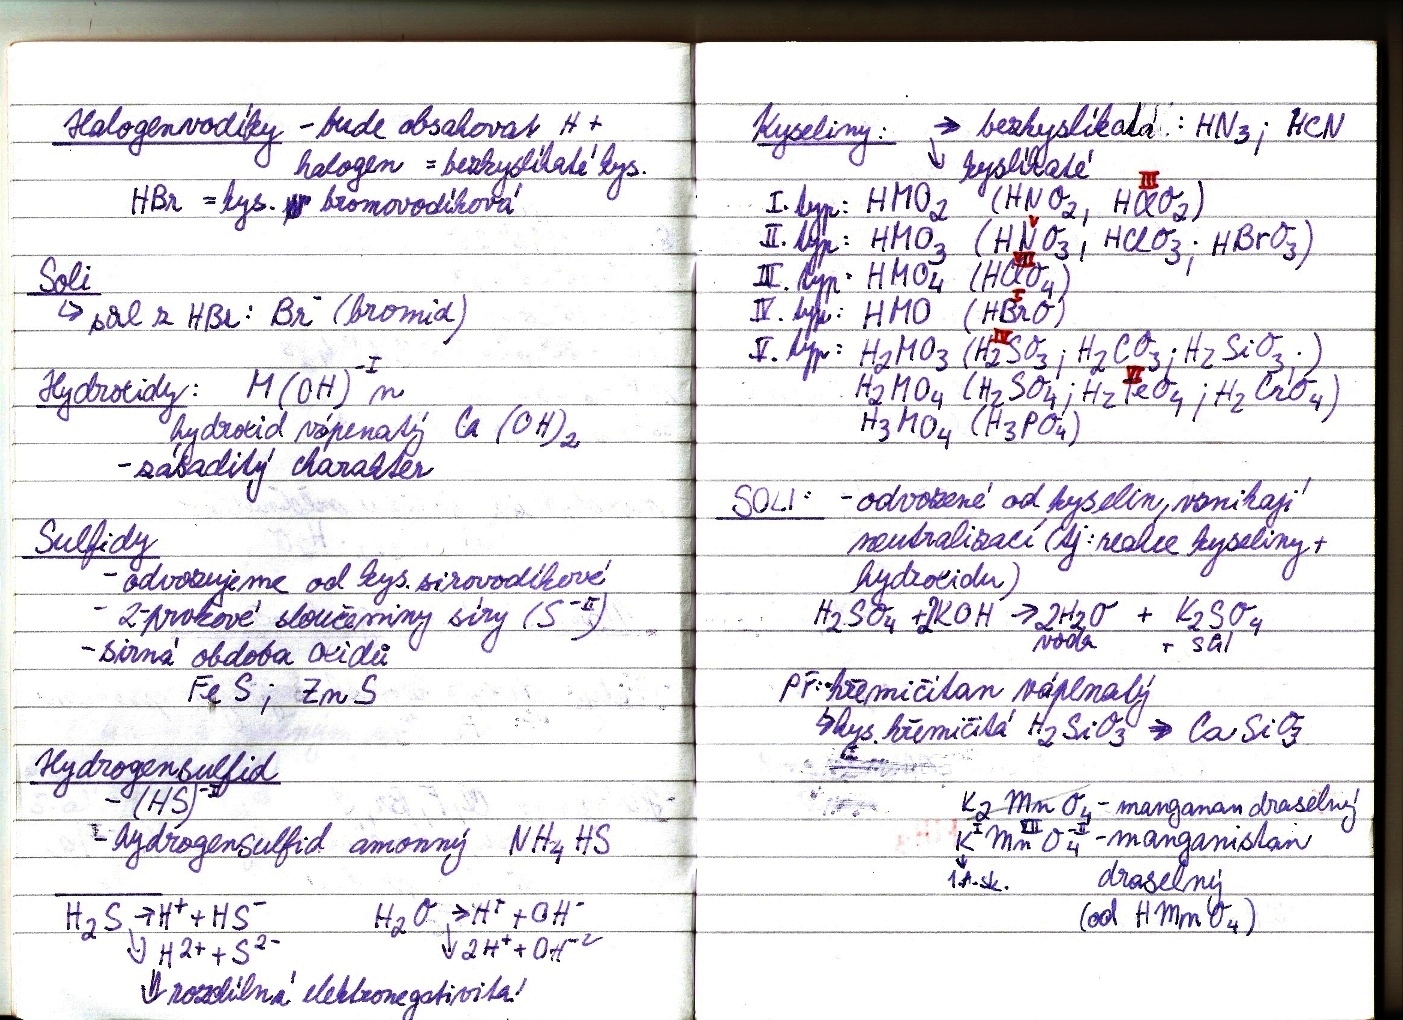 Halogenvodíky - bude obsahovat H +
halogen = bezkyslíkaté kys.
HBr = kys. bromovodíková
Soli
↳ sůl z HBr: Br⁻ (bromid)
Hydroxidy: M(OH)⁻ᴵ n
hydroxid vápenatý Ca (OH)₂
- zásaditý charakter
Sulfidy
- odvozujeme od kys. sirovodíkové
- 2-prvkové sloučeniny síry (S⁻ᴵᴵ)
- sirná obdoba oxidů
FeS ; ZnS
Hydrogensulfid
- (HS)⁻ᴵ
- hydrogensulfid amonný NH₄HS
H₂S → H⁺ + HS⁻
↓ H2+ + S²⁻
H₂O → H⁺ + OH⁻
↓ 2H⁺ + OH⁻²
↓ rozdílná elektronegativita!
Kyseliny: → bezkyslíkatá : HN₃ ; HCN
↓ kyslíkaté
I. typ: HMO₂ (HNO₂, HClᴵᴵᴵO₂)
II. typ: HMO₃ (HNⱽO₃ ; HClO₃ ; HBrO₃)
III. typ: HMO₄ (HClⱽᴵᴵO₄)
IV. typ: HMO (HBrᴵO)
V. typ: H₂MO₃ (H₂SᴵⱽO₃ ; H₂CO₃ ; H₂SiO₃ ; )
H₂MO₄ (H₂SO₄ ; H₂FeⱽᴵO₄ ; H₂CrO₄)
H₃MO₄ (H₃PO₄)
SOLI: - odvozené od kyselin, vznikají
neutralizací (tj: reakce kyseliny +
hydroxidu)
H₂SO₄ + 2KOH → 2H₂O + K₂SO₄
voda + sůl
PŘ: křemičitan vápenatý
↳ kys. křemičitá H₂SiO₃ → CaSiO₃
K₂MnO₄ - manganan draselný
KᴵMnⱽᴵᴵO₄⁻ᴵᴵ - manganistan
↓
1.A.sk. draselný
(od HMnO₄)